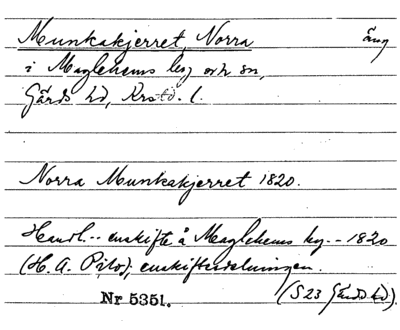 Munkakjerret, Norra äng
i Maglehems by och sn,
Gärds hd, Krstd. l.
Norra Munkakjerret 1820.
Handl. -- enskifte å Maglehems by. -- 1820
(H. A. Pilo), enskiftesdelningen.
Nr 5351. (S 23 Gärds hd).